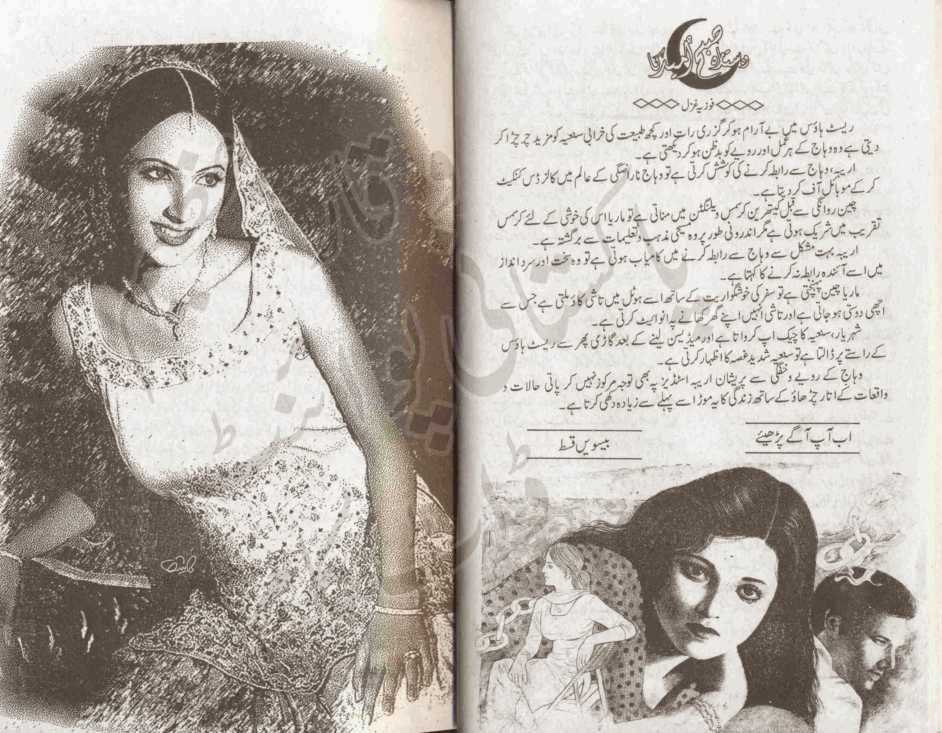 فوزیہ غزل
ریسٹ ہاؤس میں بے آرام ہو کر گزری رات اور کچھ طبیعت کی خرابی سنعیہ کو مزید چڑچڑا کر
دیتی ہے وہ وہاج کے ہر عمل اور رویے کو بدظن ہو کر دیکھتی ہے۔
اریبہ، وہاج سے رابطہ کرنے کی کوشش کرتی ہے تو وہاج ناراضگی کے عالم میں کالز ڈس کنکٹ
کر کے موبائل آف کر دیتا ہے۔
چین روانگی سے قبل کیتھرین کرسمس ویلنگٹن میں مناتی ہے تو ماریا اس کی خوشی کے لئے کرسمس
تقریب میں شریک ہوتی ہے مگر اندرونی طور پر وہ مسیحی مذہب و تعلیمات سے برگشتہ ہے۔
اریبہ بہت مشکل سے وہاج سے رابطہ کرنے میں کامیاب ہوتی ہے تو وہ سخت اور سرد انداز
میں اسے آئندہ رابطہ نہ کرنے کا کہتا ہے۔
ماریا چین پہنچتی ہے تو سفر کی خوشگواریت کے ساتھ اسے ہوٹل میں تاشی کاؤ ملتی ہے جس سے
اچھی دوستی ہو جاتی ہے اور تاشی انہیں اپنے گھر کھانے پر انوائیٹ کرتی ہے۔
شہریار، سنعیہ کا چیک اپ کرواتا ہے اور میڈیسن لینے کے بعد گاڑی پھر سے ریسٹ ہاؤس
کے راستے پر ڈالتا ہے تو سنعیہ شدید غصہ کا اظہار کرتی ہے۔
وہاج کے رویے و خفگی سے پریشان اریبہ اسٹڈیز پہ بھی توجہ مرکوز نہیں کر پاتی حالات و
واقعات کے اتار چڑھاؤ کے ساتھ زندگی کا یہ موڑ اسے پہلے سے زیادہ دکھی کرتا ہے۔
اب آپ آگے پڑھیئے
بیسویں قسط